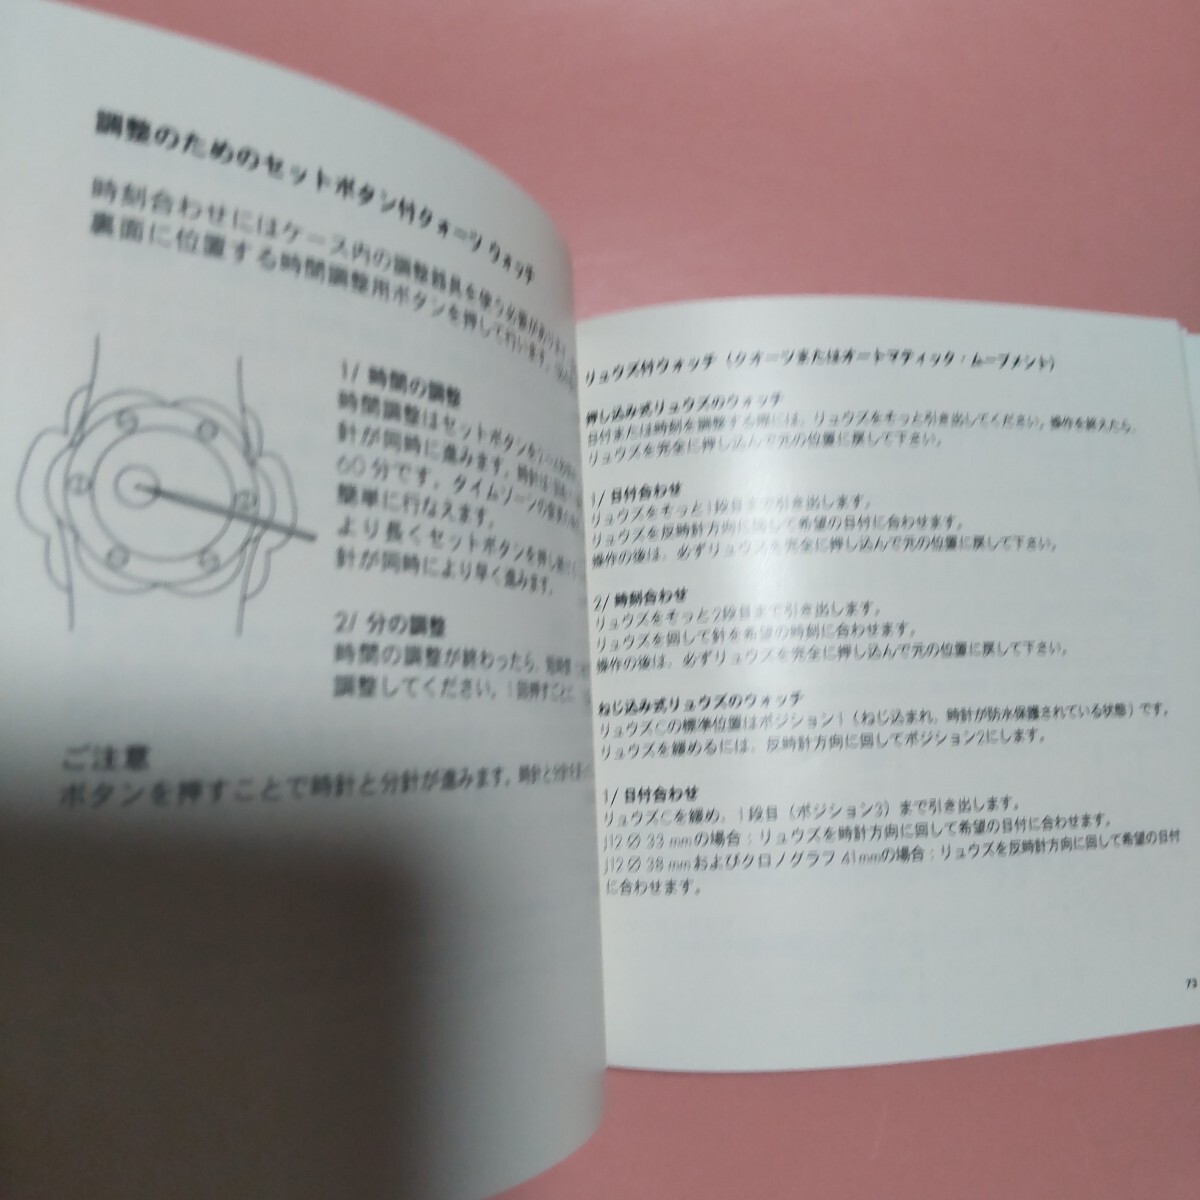 調整のためのセットボタン付クォーツ ウォッチ
時刻合わせにはケース内の調整器具を使う必要があります。
裏面に位置する時間調整用ボタンを押して行います。
1/ 時間の調整
時間調整はセットボタンを
針が同時に進みます。時針は
60分です。タイムゾーンの変更も
簡単に行なえます。
より長くセットボタンを押し続けると
針が同時により早く進みます。
2/ 分の調整
時間の調整が終わったら、
調整してください。1回押すごとに
ご注意
ボタンを押すことで時計と分針が進みます。時針と分針は
リュウズ付ウォッチ（クオーツまたはオートマティック・ムーブメント）
押し込み式リュウズのウォッチ
日付または時刻を調整する際には、リュウズをそっと引き出してください。操作を終えたら、
リュウズを完全に押し込んで元の位置に戻して下さい。
1/ 日付合わせ
リュウズをそっと1段目まで引き出します。
リュウズを反時計方向に回して希望の日付に合わせます。
操作の後は、必ずリュウズを完全に押し込んで元の位置に戻して下さい。
2/ 時刻合わせ
リュウズをそっと2段目まで引き出します。
リュウズを回して針を希望の時刻に合わせます。
操作の後は、必ずリュウズを完全に押し込んで元の位置に戻して下さい。
ねじ込み式リュウズのウォッチ
リュウズCの標準位置はポジション1（ねじ込まれ、時計が防水保護されている状態）です。
リュウズを緩めるには、反時計方向に回してポジション2にします。
1/ 日付合わせ
リュウズCを緩め、1段目（ポジション3）まで引き出します。
J12 Ø 33 mmの場合：リュウズを時計方向に回して希望の日付に合わせます。
J12 Ø 38 mmおよびクロノグラフ 41mmの場合：リュウズを反時計方向に回して希望の日付
に合わせます。
73